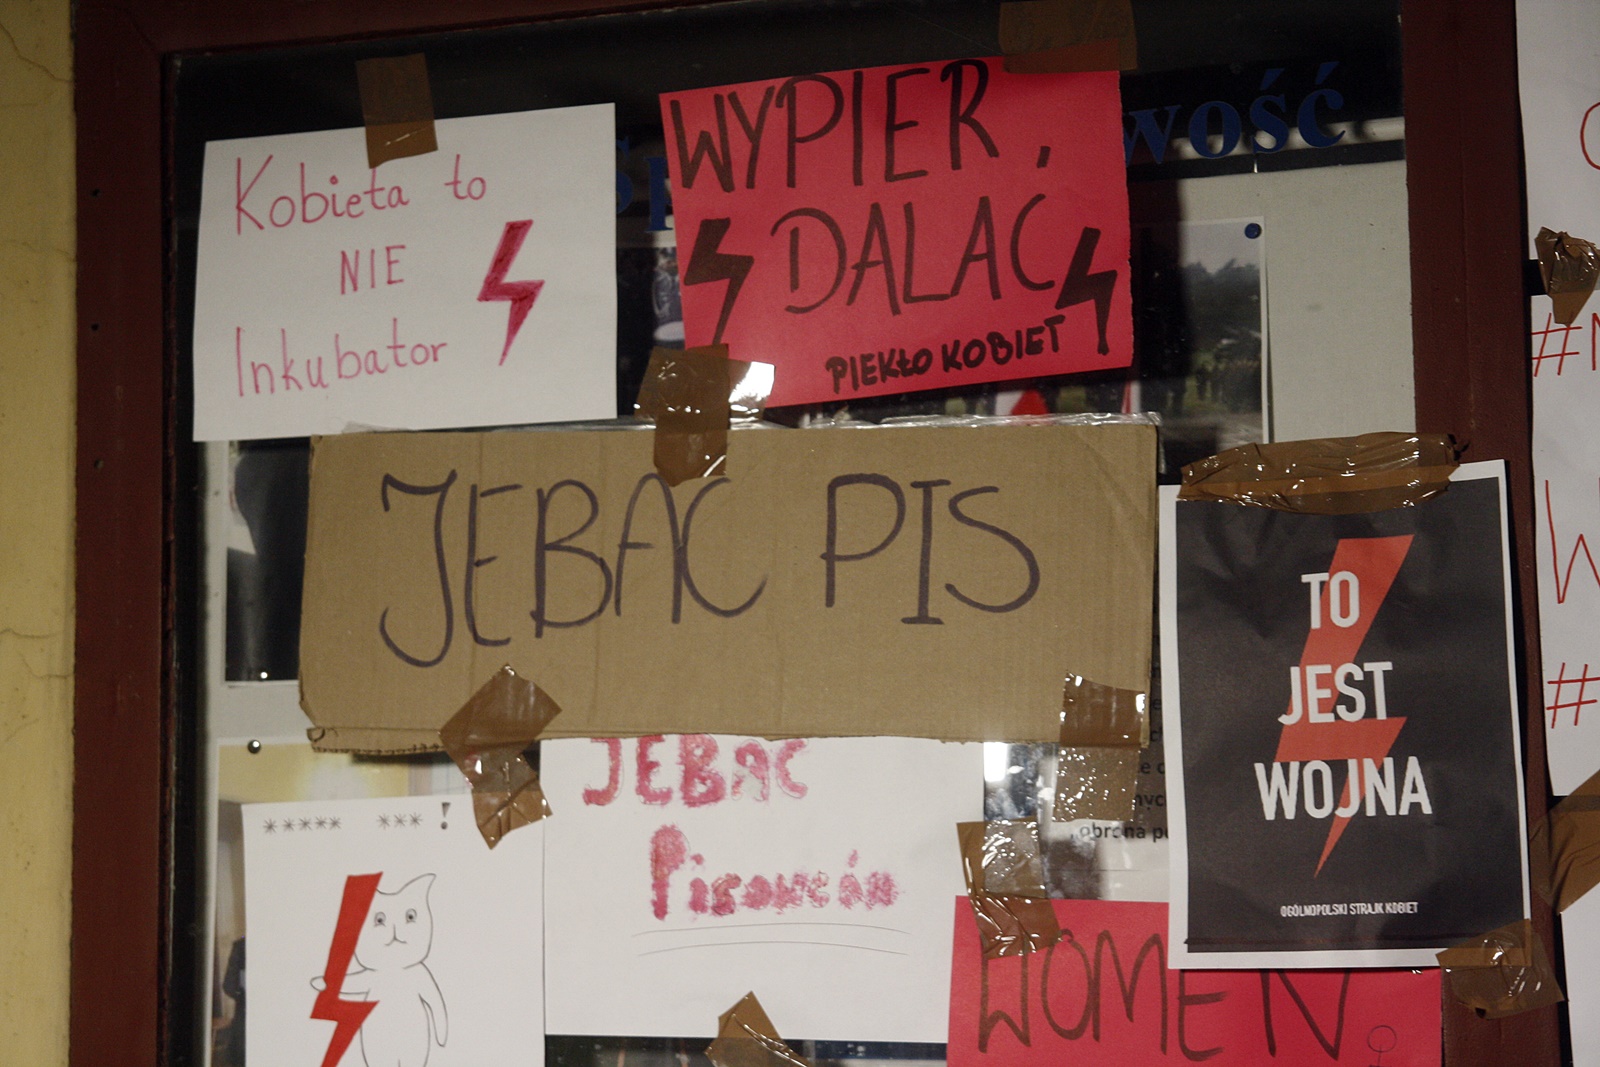 Kobieta to
NIE
Inkubator
WYPIER.
DALAĆ
PIEKŁO KOBIET
wość
JEBAC PIS
TO
JEST
WOJNA
OGÓLNOPOLSKI STRAJK KOBIET
***** *** !
JEBAC
Pisowców
„obrona
WOMEN
#
#